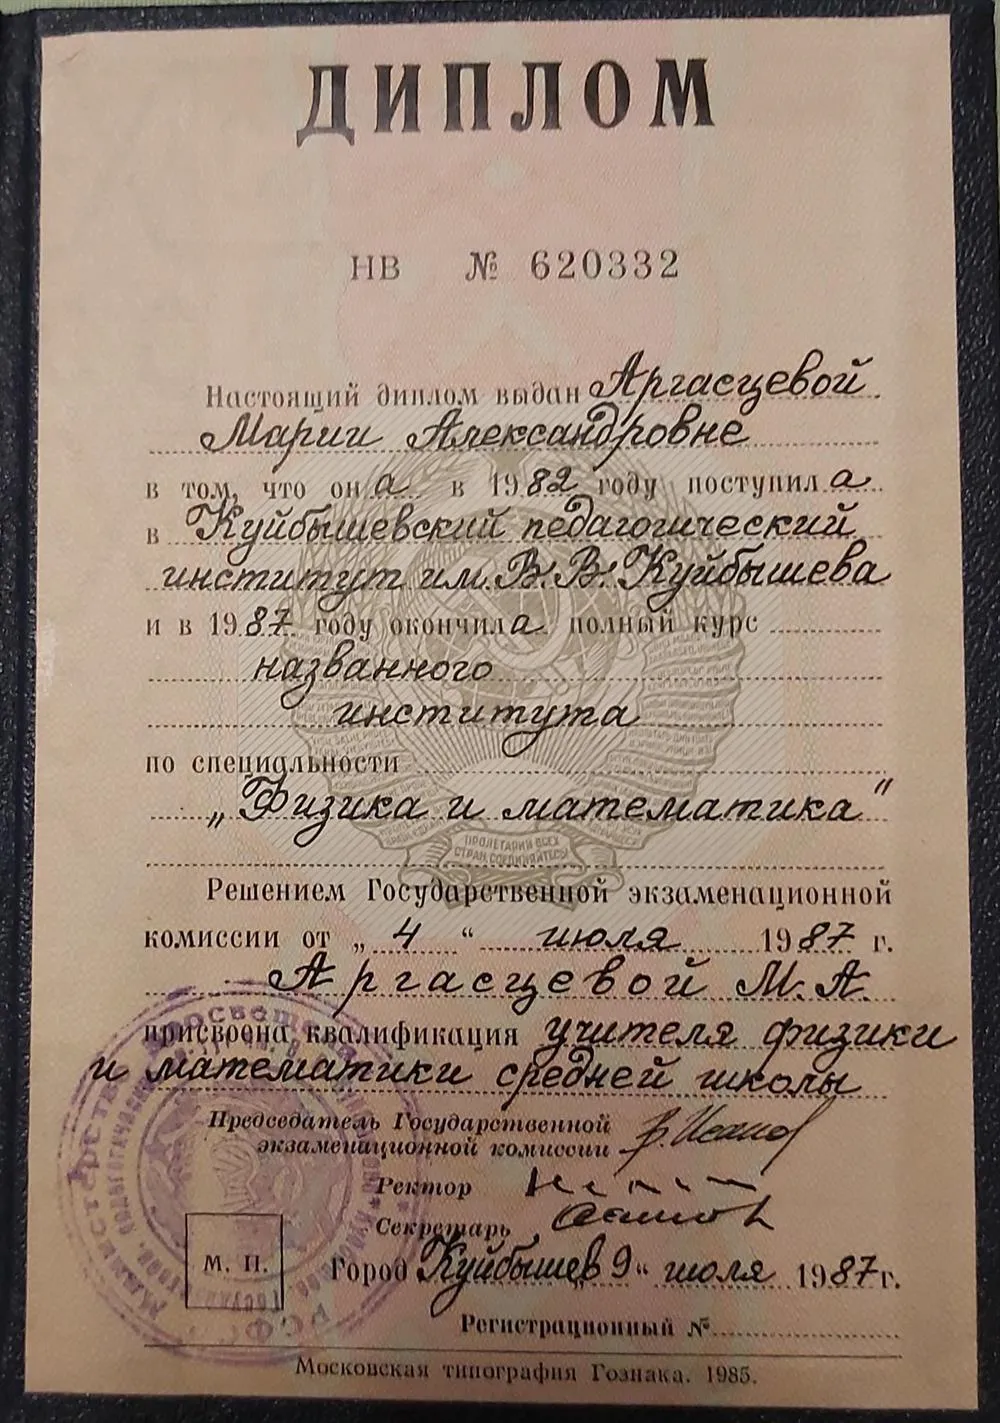 ДИПЛОМ
НВ № 620332
Настоящий диплом выдан Аргасцевой
Марии Александровне
в том, что он а в 1982 году поступил а
в Куйбышевский педагогический
институт им. В. В. Куйбышева
и в 1987 году окончил а полный курс
названного
института
по специальности
„Физика и математика"
ПРОЛЕТАРИИ ВСЕХ
СТРАН, СОЕДИНЯЙТЕСЬ!
Решением Государственной экзаменационной
комиссии от „ 4 “ июля 1987 г.
Аргасцевой М. А.
присвоена квалификация учителя физики
и математики средней школы
Председатель Государственной
экзаменационной комиссии
Ректор
Секретарь
М. П.
Город Куйбышев „ 9 “ июля 1987 г.
Регистрационный №
Московская типография Гознака. 1985.